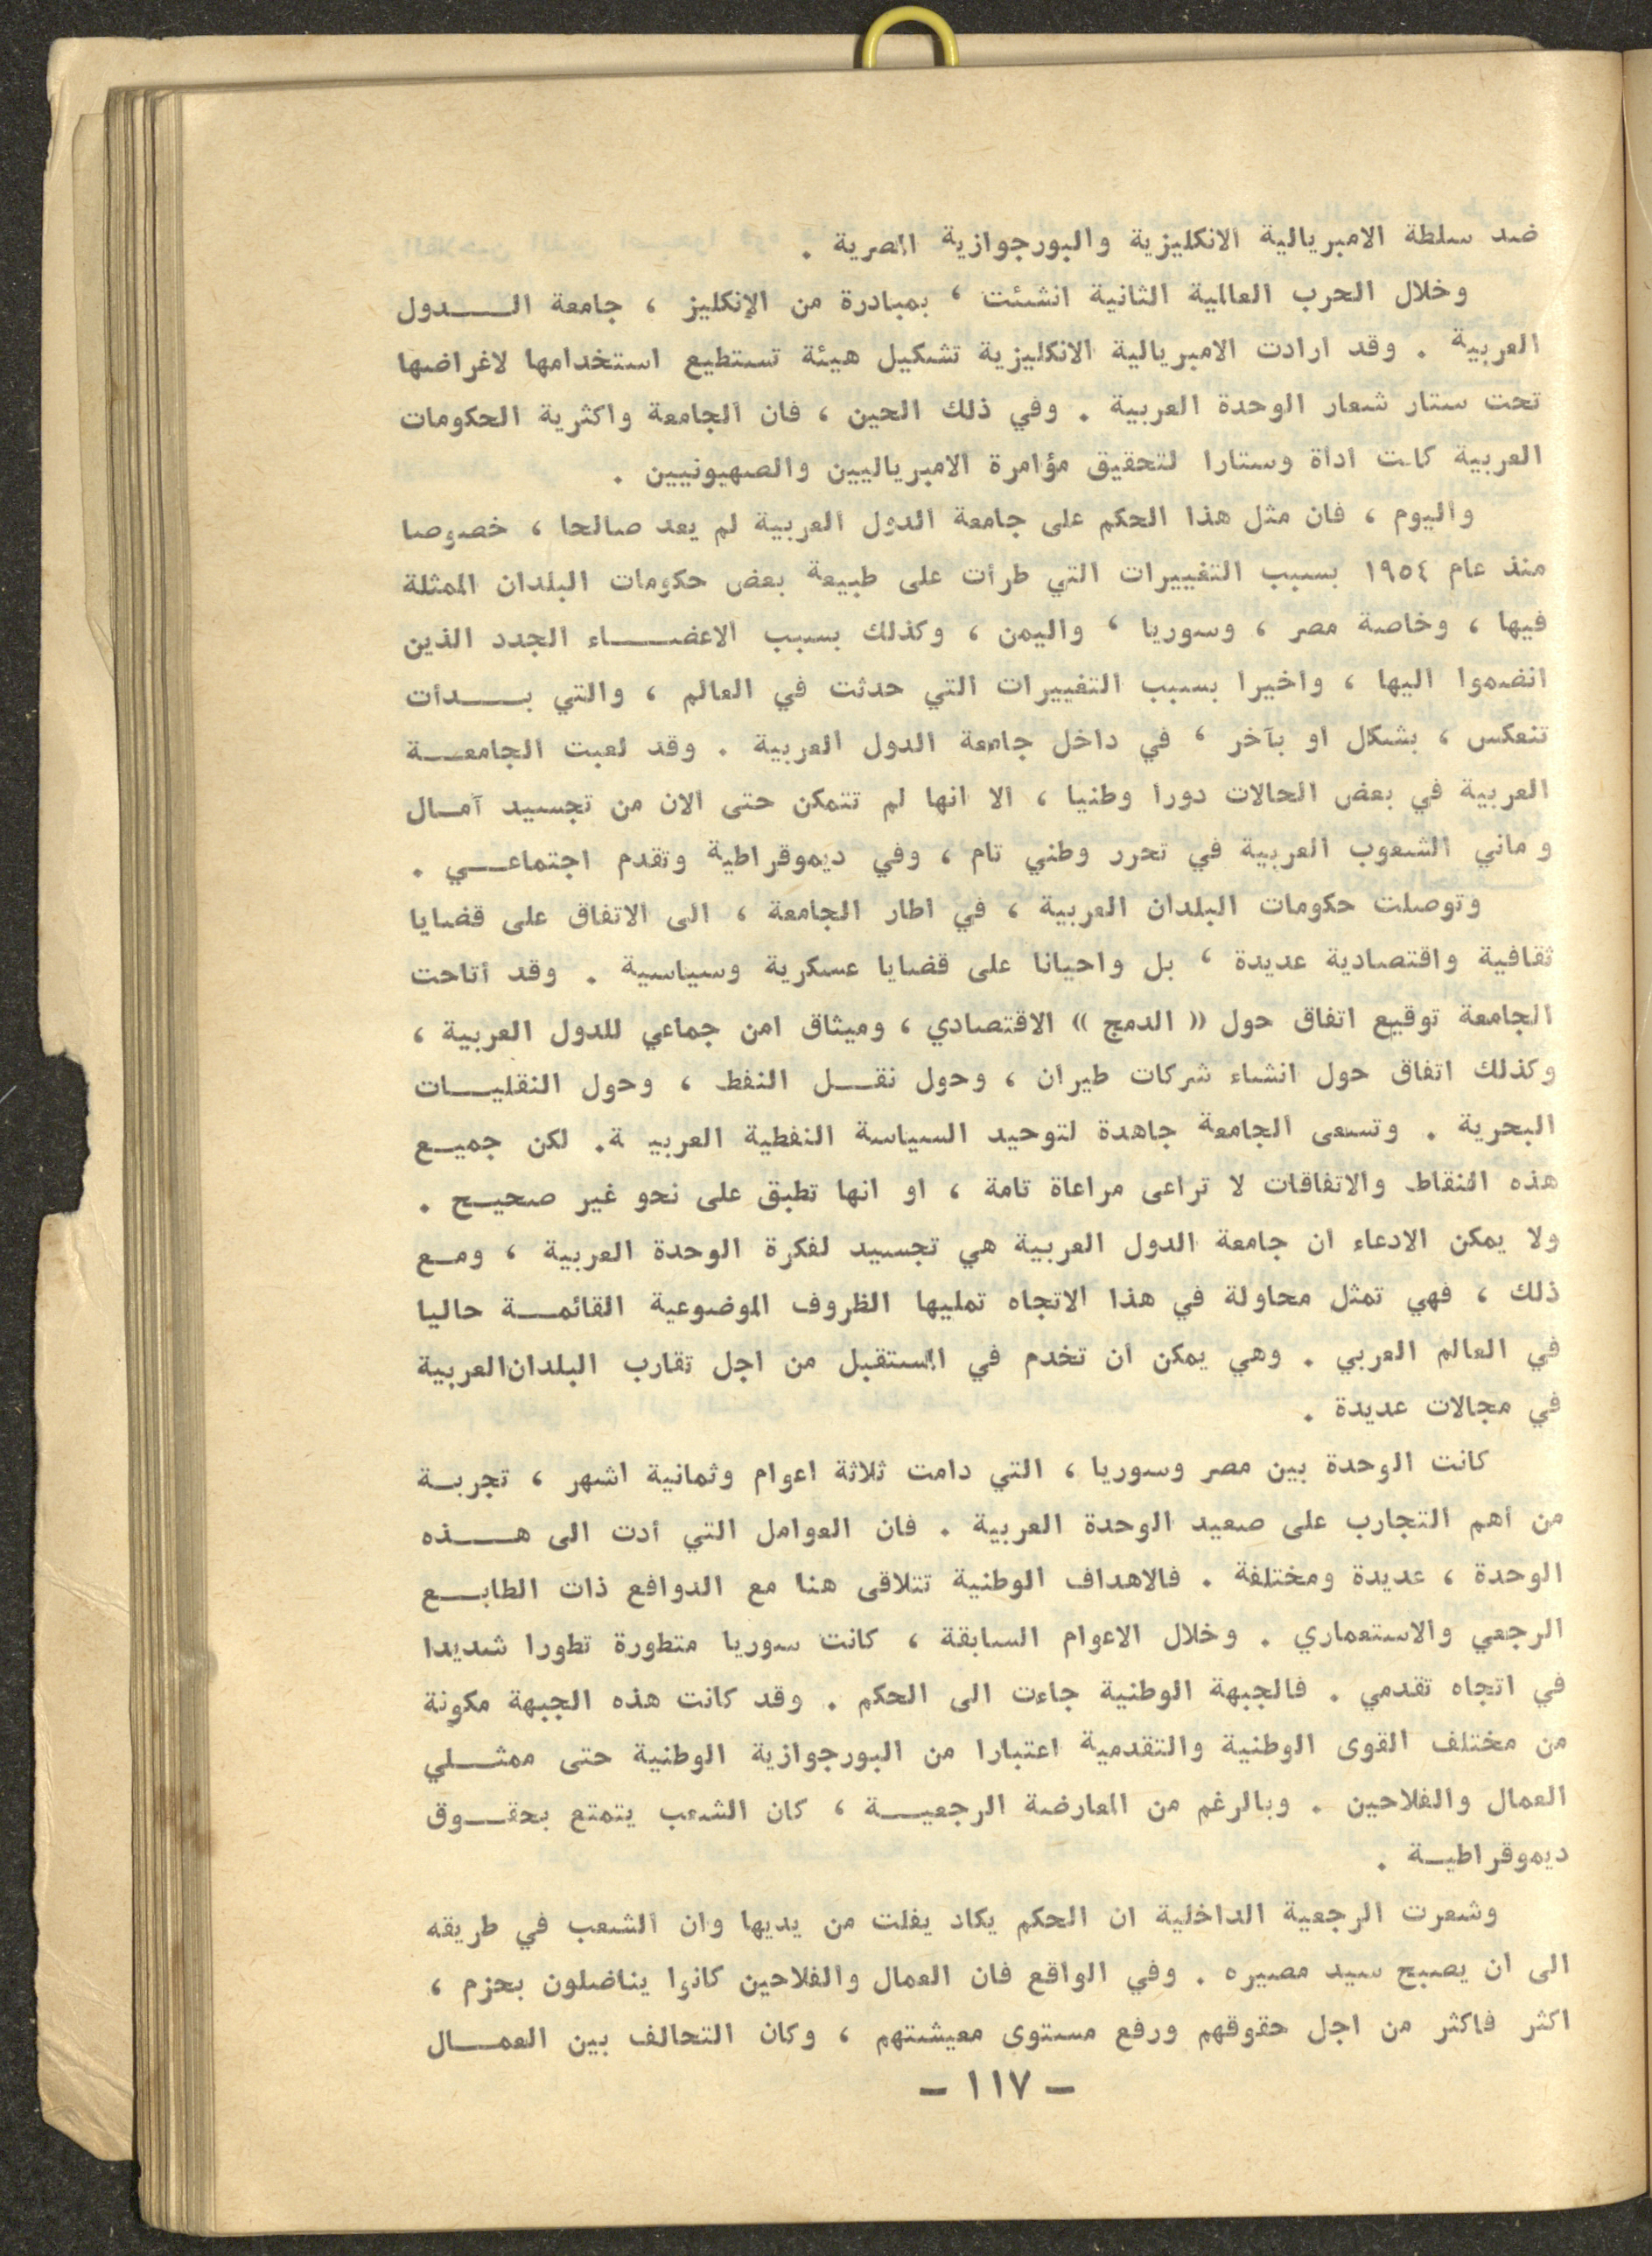 ضد سلطة الامبريالية الانكليزية والبورجوازية المصرية .
وخلال الحرب العالمية الثانية انشئت ، بمبادرة من الإنكليز ، جامعة الـــدول
العربية . وقد ارادت الامبريالية الانكليزية تشكيل هيئة تستطيع استخدامها لاغراضها
تحت ستار شعار الوحدة العربية . وفي ذلك الحين ، فان الجامعة واكثرية الحكومات
العربية كانت اداة وستارا لتحقيق مؤامرة الامبرياليين والصهيونيين .
واليوم ، فان مثل هذا الحكم على جامعة الدول العربية لم يعد صالحا ، خصوصا
منذ عام ١٩٥٤ بسبب التغييرات التي طرأت على طبيعة بعض حكومات البلدان الممثلة
فيها ، وخاصة مصر ، وسوريا ، واليمن ، وكذلك بسبب الاعضـــاء الجدد الذين
انضموا اليها ، واخيرا بسبب التغييرات التي حدثت في العالم ، والتي بـــدأت
تنعكس ، بشكل او بآخر ، في داخل جامعة الدول العربية . وقد لعبت الجامعـــة
العربية في بعض الحالات دورا وطنيا ، الا انها لم تتمكن حتى الان من تجسيد آمــال
و ماني الشعوب العربية في تحرر وطني تام ، وفي ديموقراطية وتقدم اجتماعــي .
وتوصلت حكومات البلدان العربية ، في اطار الجامعة ، الى الاتفاق على قضايا
ثقافية واقتصادية عديدة ، بل واحيانا على قضايا عسكرية وسياسية . وقد أتاحت
الجامعة توقيع اتفاق حول « الدمج » الاقتصادي ، وميثاق امن جماعي للدول العربية ،
وكذلك اتفاق حول انشاء شركات طيران ، وحول نقــل النفط ، وحول النقليــات
البحرية . وتسعى الجامعة جاهدة لتوحيد السياسة النفطية العربيـ ة. لكن جميــع
هذه النقاط والاتفاقات لا تراعى مراعاة تامة ، او انها تطبق على نحو غير صحيــح .
ولا يمكن الادعاء ان جامعة الدول العربية هي تجسيد لفكرة الوحدة العربية ، ومــع
ذلك ، فهي تمثل محاولة في هذا الاتجاه تمليها الظروف الموضوعية القائمــة حاليا
في العالم العربي . وهي يمكن ان تخدم في المستقبل من اجل تقارب البلدان العربية
في مجالات عديدة .
كانت الوحدة بين مصر وسوريا ، التي دامت ثلاثة اعوام وثمانية اشهر ، تجربــة
من أهم التجارب على صعيد الوحدة العربية . فان العوامل التي أدت الى هـــذه
الوحدة ، عديدة ومختلفة . فالاهداف الوطنية تتلاقى هنا مع الدوافع ذات الطابــع
الرجعي والاستعماري . وخلال الاعوام السابقة ، كانت سوريا متطورة تطورا شديدا
في اتجاه تقدمي . فالجبهة الوطنية جاءت الى الحكم . وقد كانت هذه الجبهة مكونة
من مختلف القوى الوطنية والتقدمية اعتبارا من البورجوازية الوطنية حتى ممثــلي
العمال والفلاحين . وبالرغم من المعارضة الرجعيـــة ، كان الشعب يتمتع بحقــوق
ديموقراطيــة .
وشعرت الرجعية الداخلية ان الحكم يكاد يفلت من يديها وان الشعب في طريقه
الى ان يصبح سيد مصيره . وفي الواقع فان العمال والفلاحين كانوا يناضلون بحزم ،
اكثر فاكثر من اجل حقوقهم ورفع مستوى معيشتهم ، وكان التحالف بين العمــال
– ١١٧ –